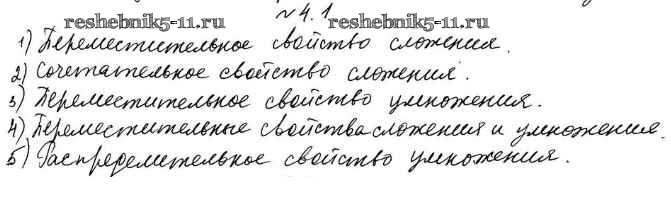 reshebnik5-11.ru №4.1 reshebnik5-11.ru
1) Переместительное свойство сложения.
2) Сочетательное свойство сложения.
3) Переместительное свойство умножения.
4) Переместительные свойства сложения и умножения.
5) Распределительное свойство умножения.